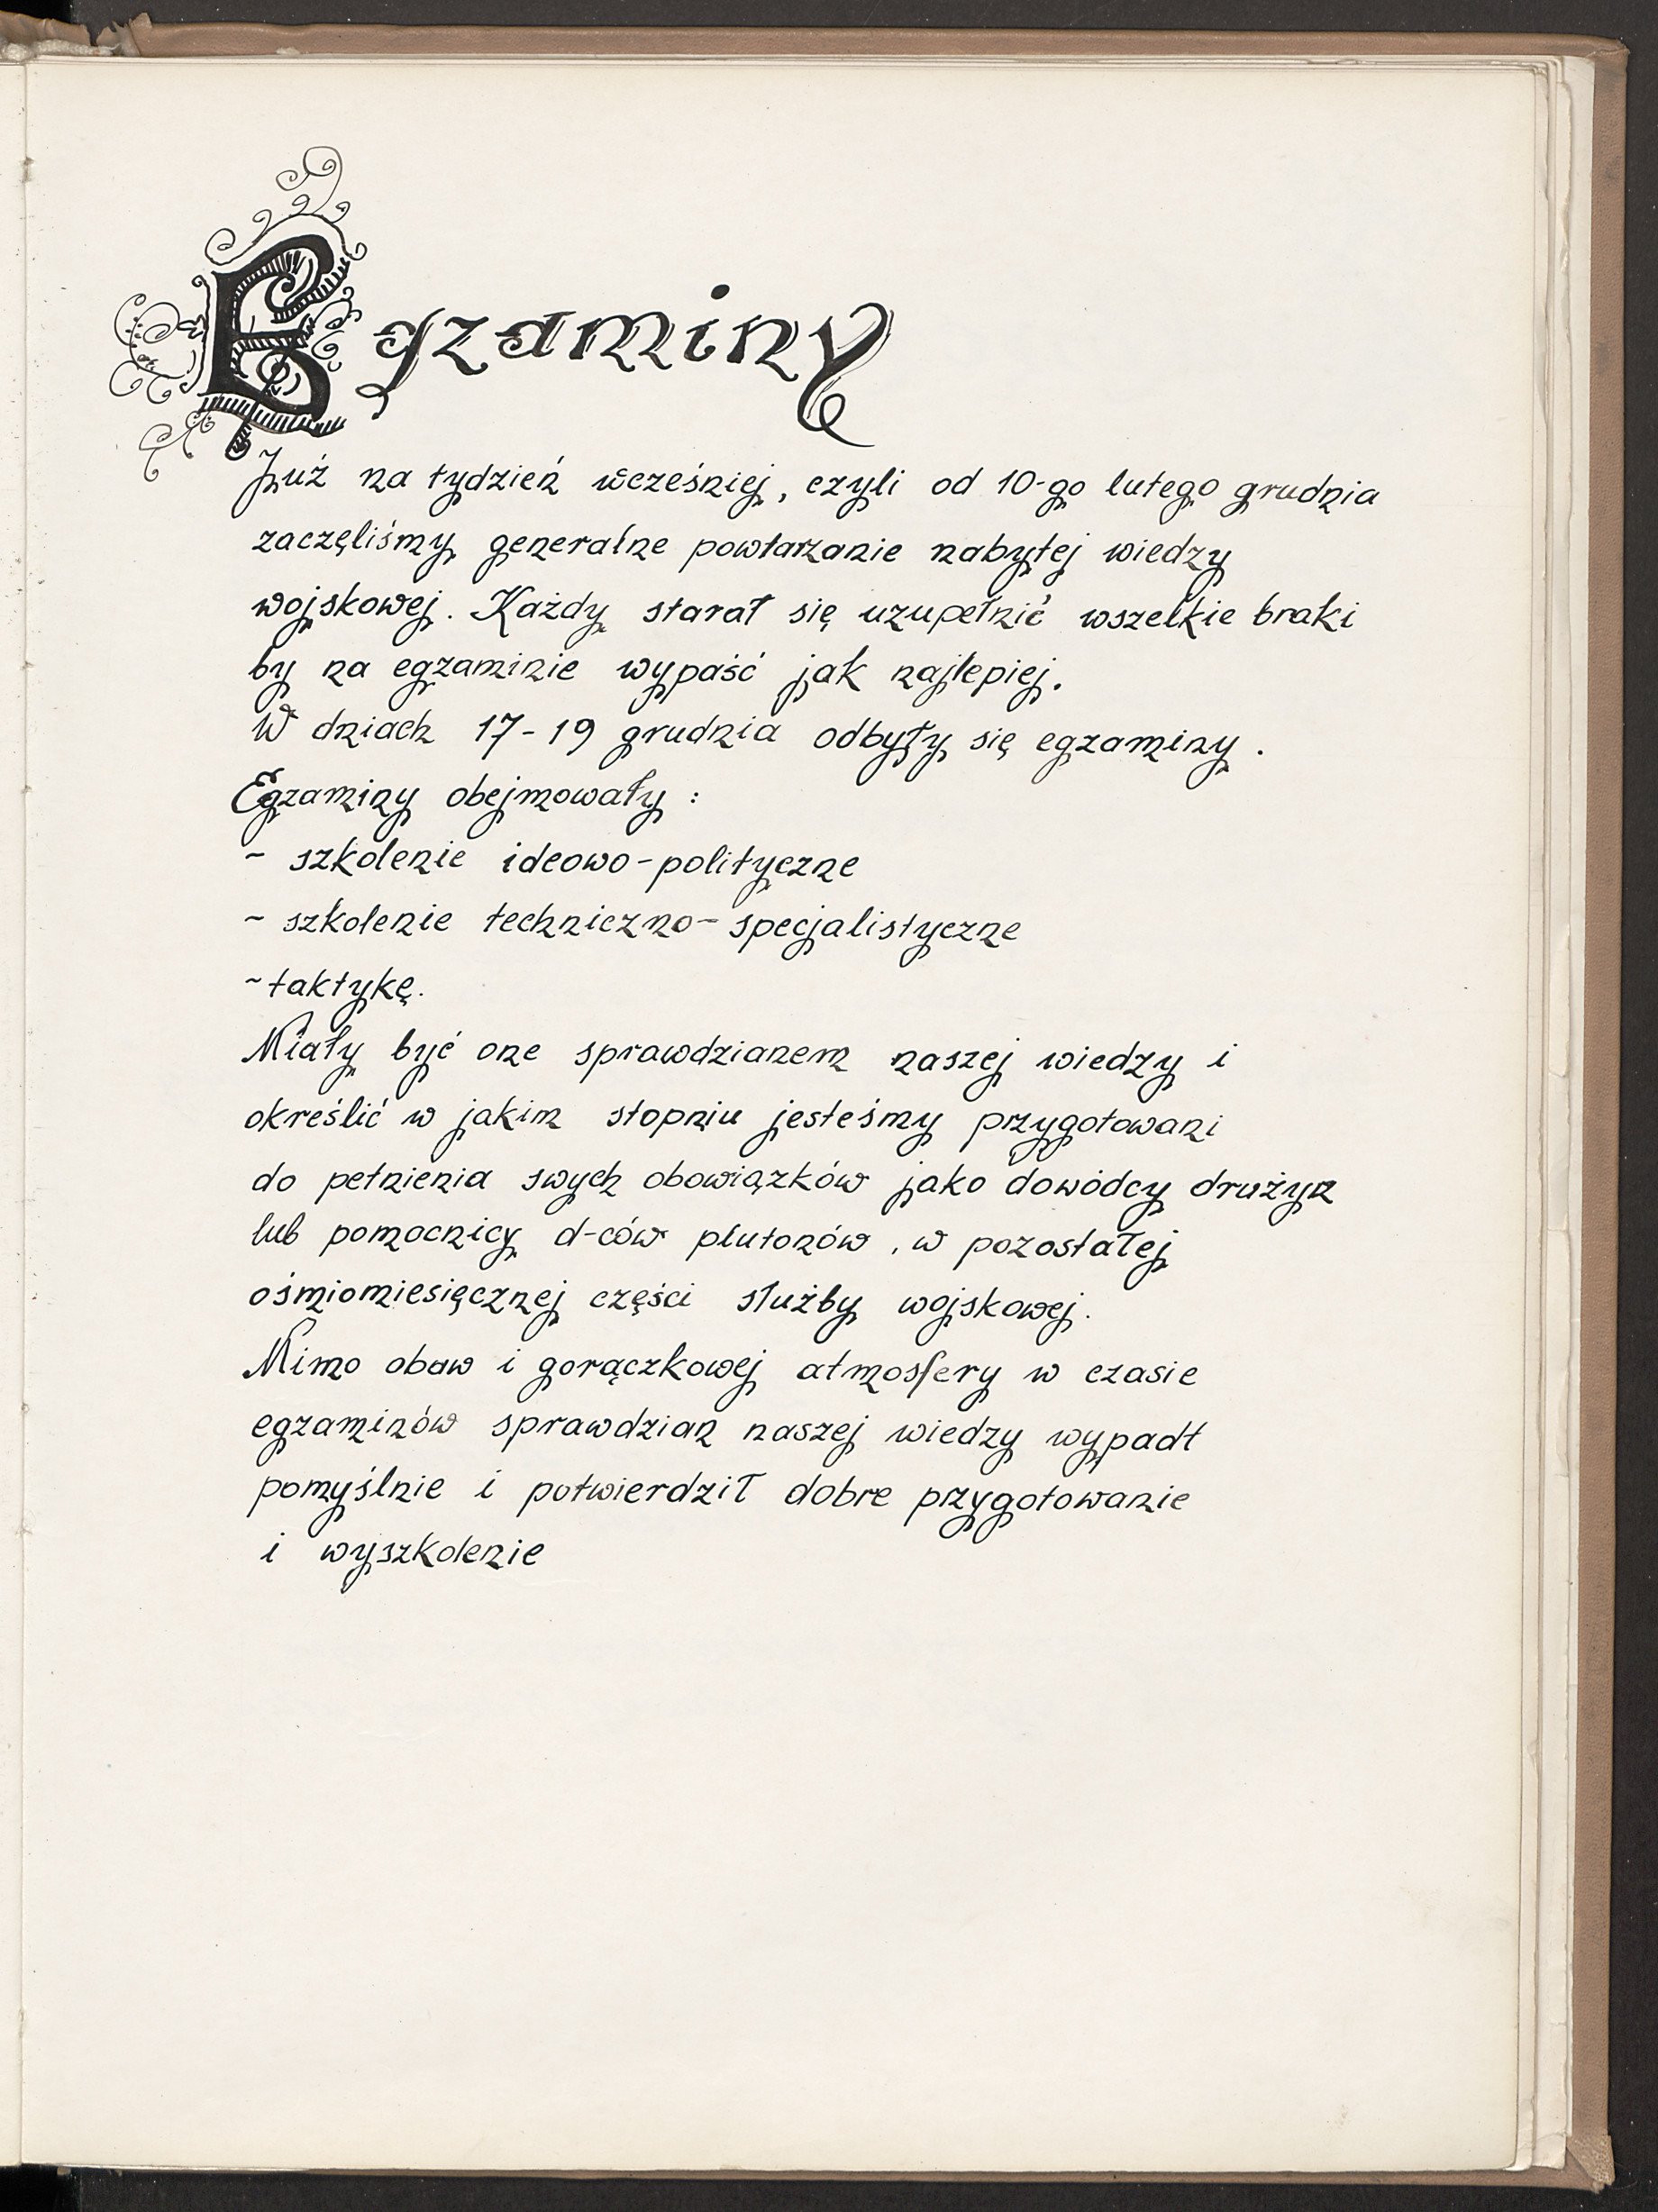 Egzaminy
Już na tydzień wcześniej, czyli od 10-go lutego grudnia
zaczęliśmy generalne powtarzanie nabytej wiedzy
wojskowej. Każdy starał się uzupełnić wszelkie braki
by na egzaminie wypaść jak najlepiej.
W dniach 17-19 grudnia odbyły się egzaminy.
Egzaminy obejmowały :
- szkolenie ideowo-polityczne
- szkolenie techniczno-specjalistyczne
- taktykę.
Miały być one sprawdzianem naszej wiedzy i
określić w jakim stopniu jesteśmy przygotowani
do pełnienia swych obowiązków jako dowódcy drużyn
lub pomocnicy d-ców plutonów, w pozostałej
ośmiomiesięcznej części służby wojskowej.
Mimo obaw i gorączkowej atmosfery w czasie
egzaminów sprawdzian naszej wiedzy wypadł
pomyślnie i potwierdził dobre przygotowanie
i wyszkolenie